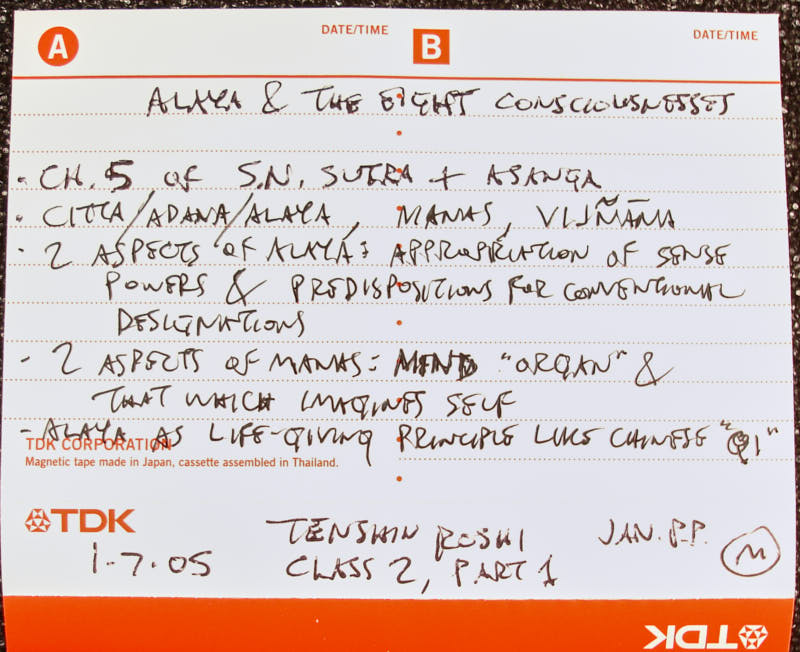 A DATE/TIME B DATE/TIME
ALAYA & THE EIGHT CONSCIOUSNESSES
· CH. 5 OF S.N. SUTRA + ASANGA
· CITTA/ADANA/ALAYA, MANAS, VIJÑĀNA
· 2 ASPECTS OF ALAYA: APPROPRIATION OF SENSE
POWERS & PREDISPOSITIONS FOR CONVENTIONAL
DESIGNATIONS
- 2 ASPECTS OF MANAS: MIND "ORGAN" &
THAT WHICH IMAGINES SELF
- ALAYA AS LIFE-GIVING PRINCIPLE LIKE CHINESE "QI"
TDK CORPORATION
Magnetic tape made in Japan, cassette assembled in Thailand.
TDK
TENSHIN ROSHI JAN. P.P.
1-7-05 CLASS 2, PART 1 M
TDK